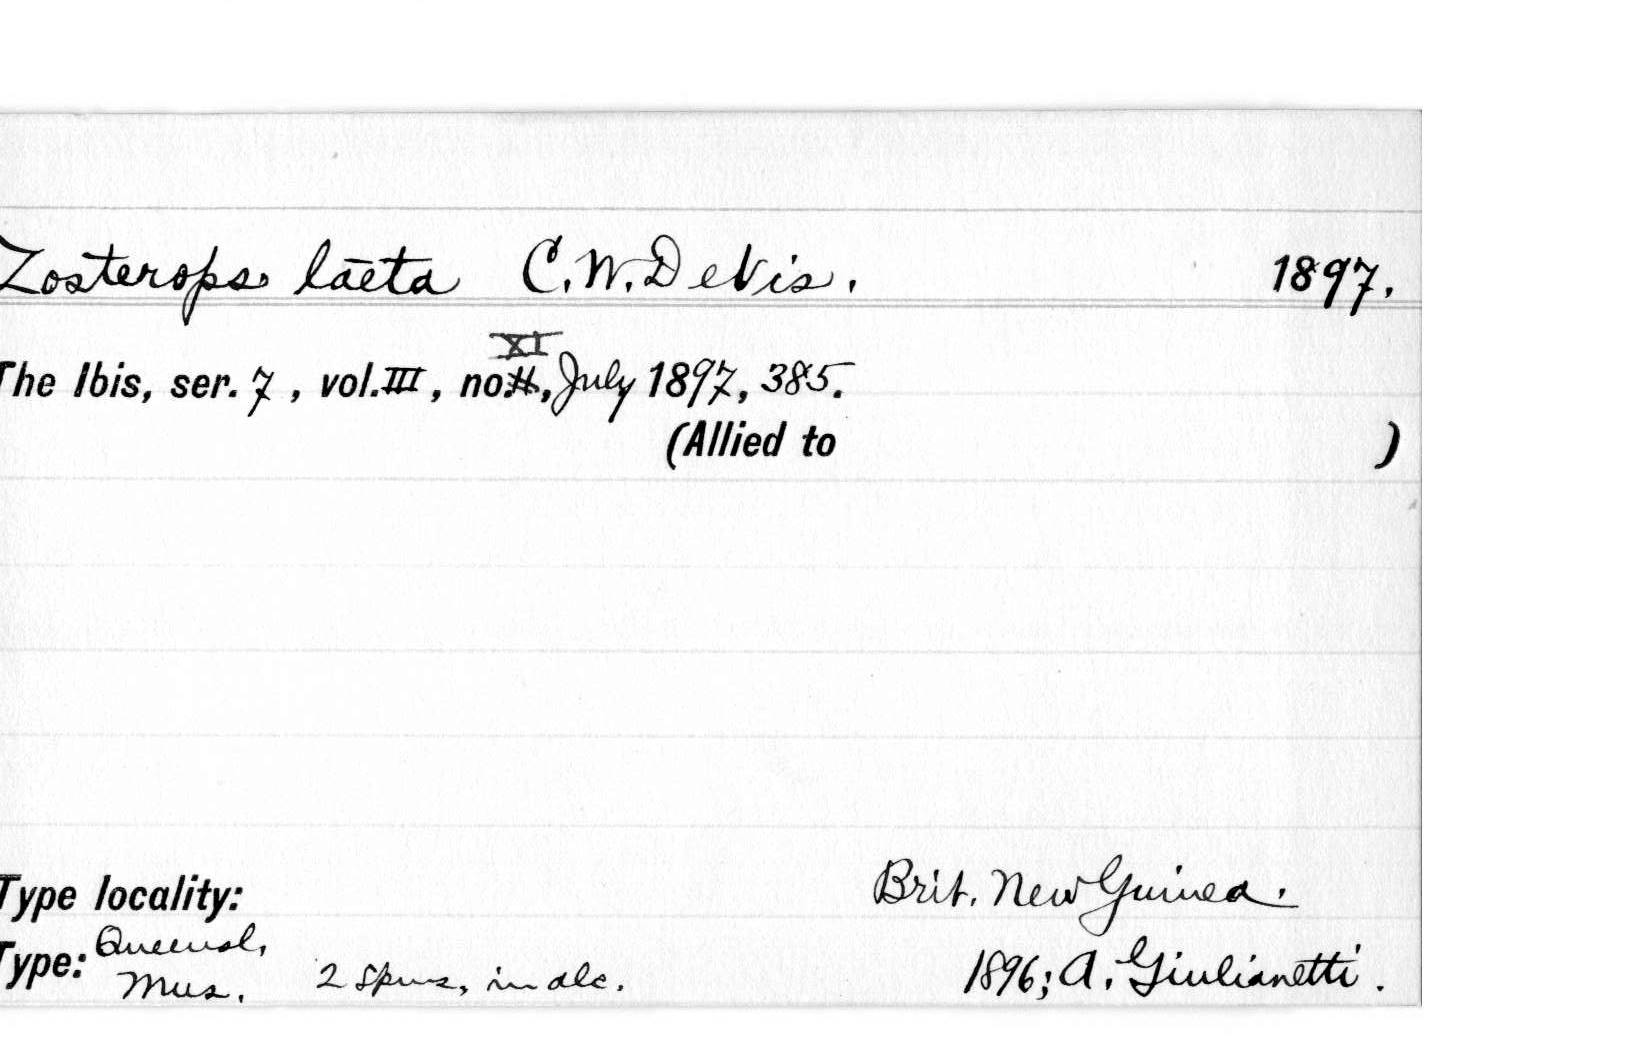 Zosterops laeta C.W. De Vis. 1897.
XI
The Ibis, ser. 7, vol. III, no. , July 1897, 385.
(Allied to )
Type locality: Brit. New Guinea.
Type: Queensl. Mus. 2 spms, in alc. 1896; A. Giulianetti.